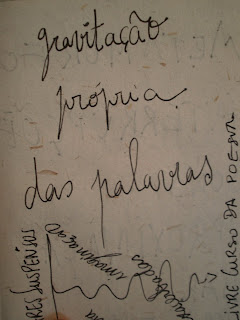 gravitação
própria
das palavras
RES SUSPENSOS
imaginação
LIVRE CURSO DA POESIA